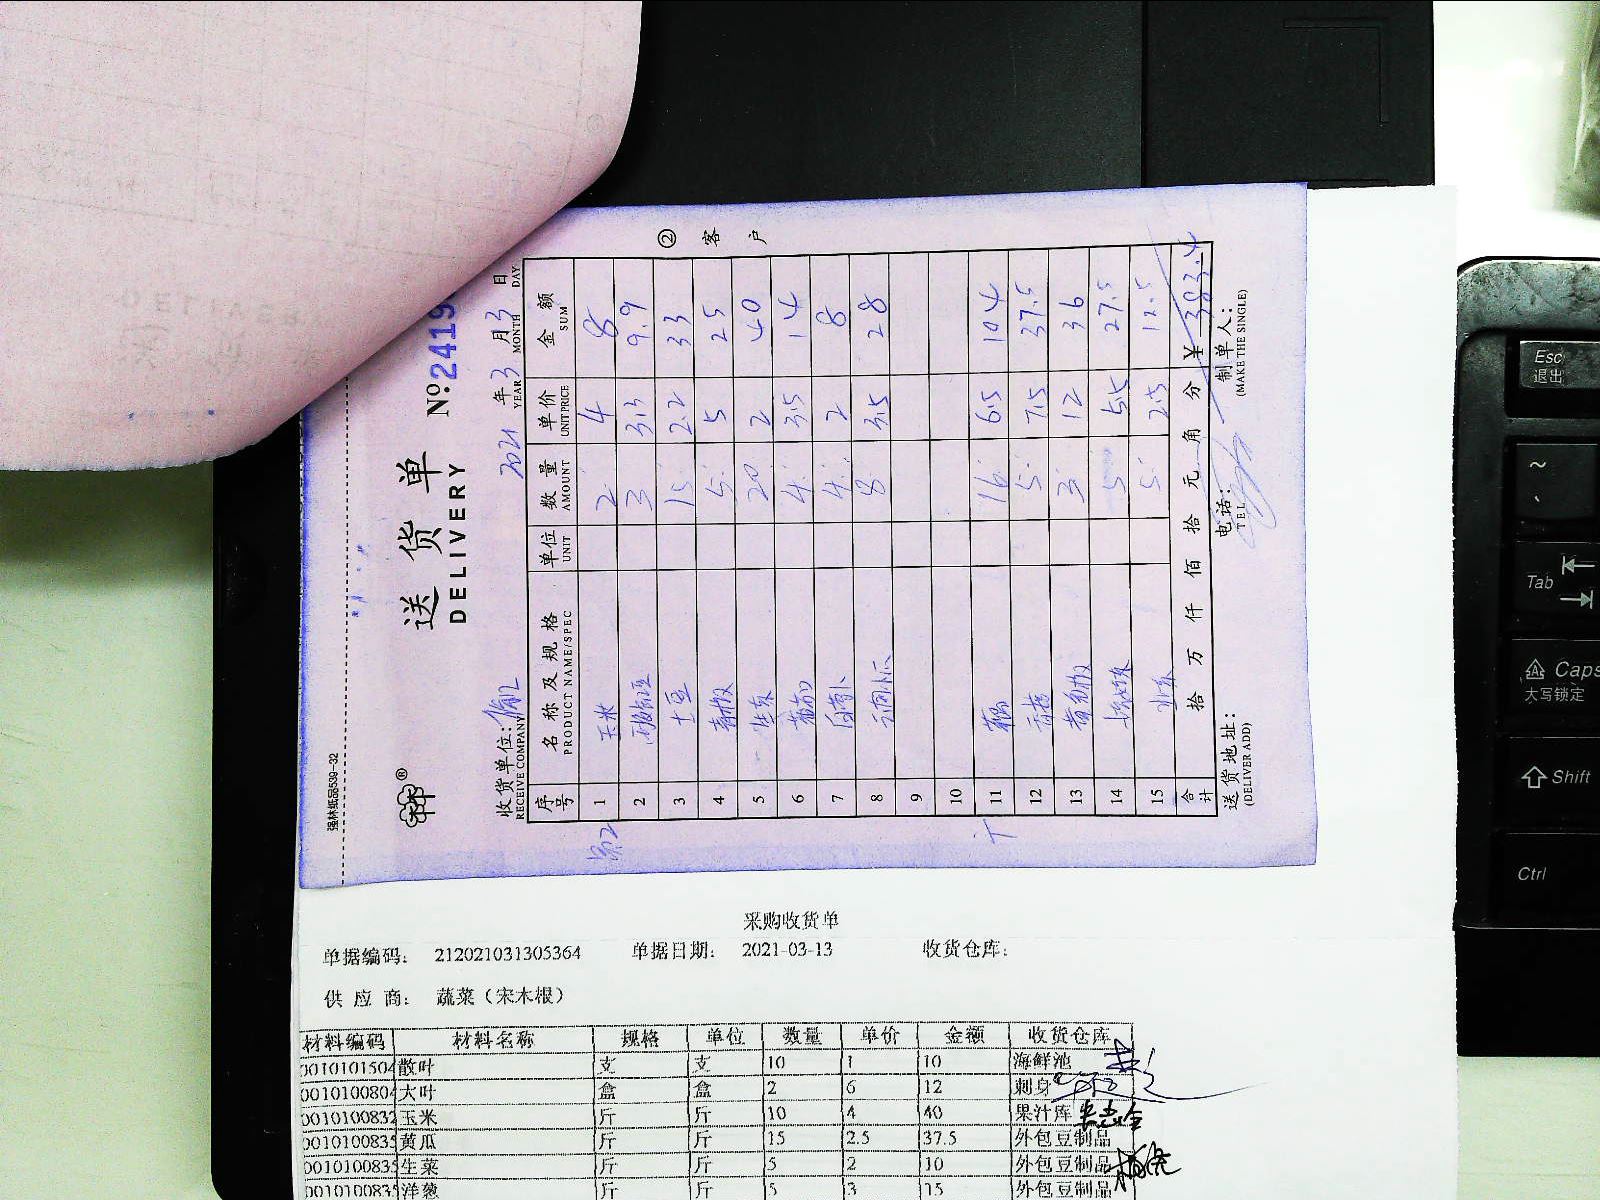 强林纸品539-32
送货单 №.2419
DELIVERY
收货单位: 2021 年 3 月 3 日
RECEIVE COMPANY YEAR MONTH DAY
② 客户
序号 名称及规格 单位 数量 单价 金额
PRODUCT NAME/SPEC UNIT AMOUNT UNIT PRICE SUM
1 玉米 2 4 8
2 3 3.3 9.9
3 土豆 15 2.2 33
4 青椒 5 5 25
5 生菜 20 2 40
6 4 3.5 14
7 白萝卜 4 2 8
8 8 3.5 28
9
10
11 藕 16 6.5 104
12 5 7.5 37.5
13 3 12 36
14 5 5.5 27.5
15 5 2.5 12.5
合计 拾 万 仟 佰 拾 元 角 分 ¥ 383.4
送货地址: 电话: 制单人:
(DELIVER ADD) TEL (MAKE THE SINGLE)
采购收货单
单据编码: 212021031305364 单据日期: 2021-03-13 收货仓库:
供应商: 蔬菜（宋木根）
材料编码 材料名称 规格 单位 数量 单价 金额 收货仓库
0010101504 散叶 支 支 10 1 10 海鲜池
0010100804 大叶 盒 盒 2 6 12 刺身
0010100832 玉米 斤 斤 10 4 40 果汁库
0010100835 黄瓜 斤 斤 15 2.5 37.5 外包豆制品
0010100835 生菜 斤 斤 5 2 10 外包豆制品
0010100835 洋葱 斤 斤 5 3 15 外包豆制品
Esc
退出
~
Tab
Caps
大写锁定
Shift
Ctrl